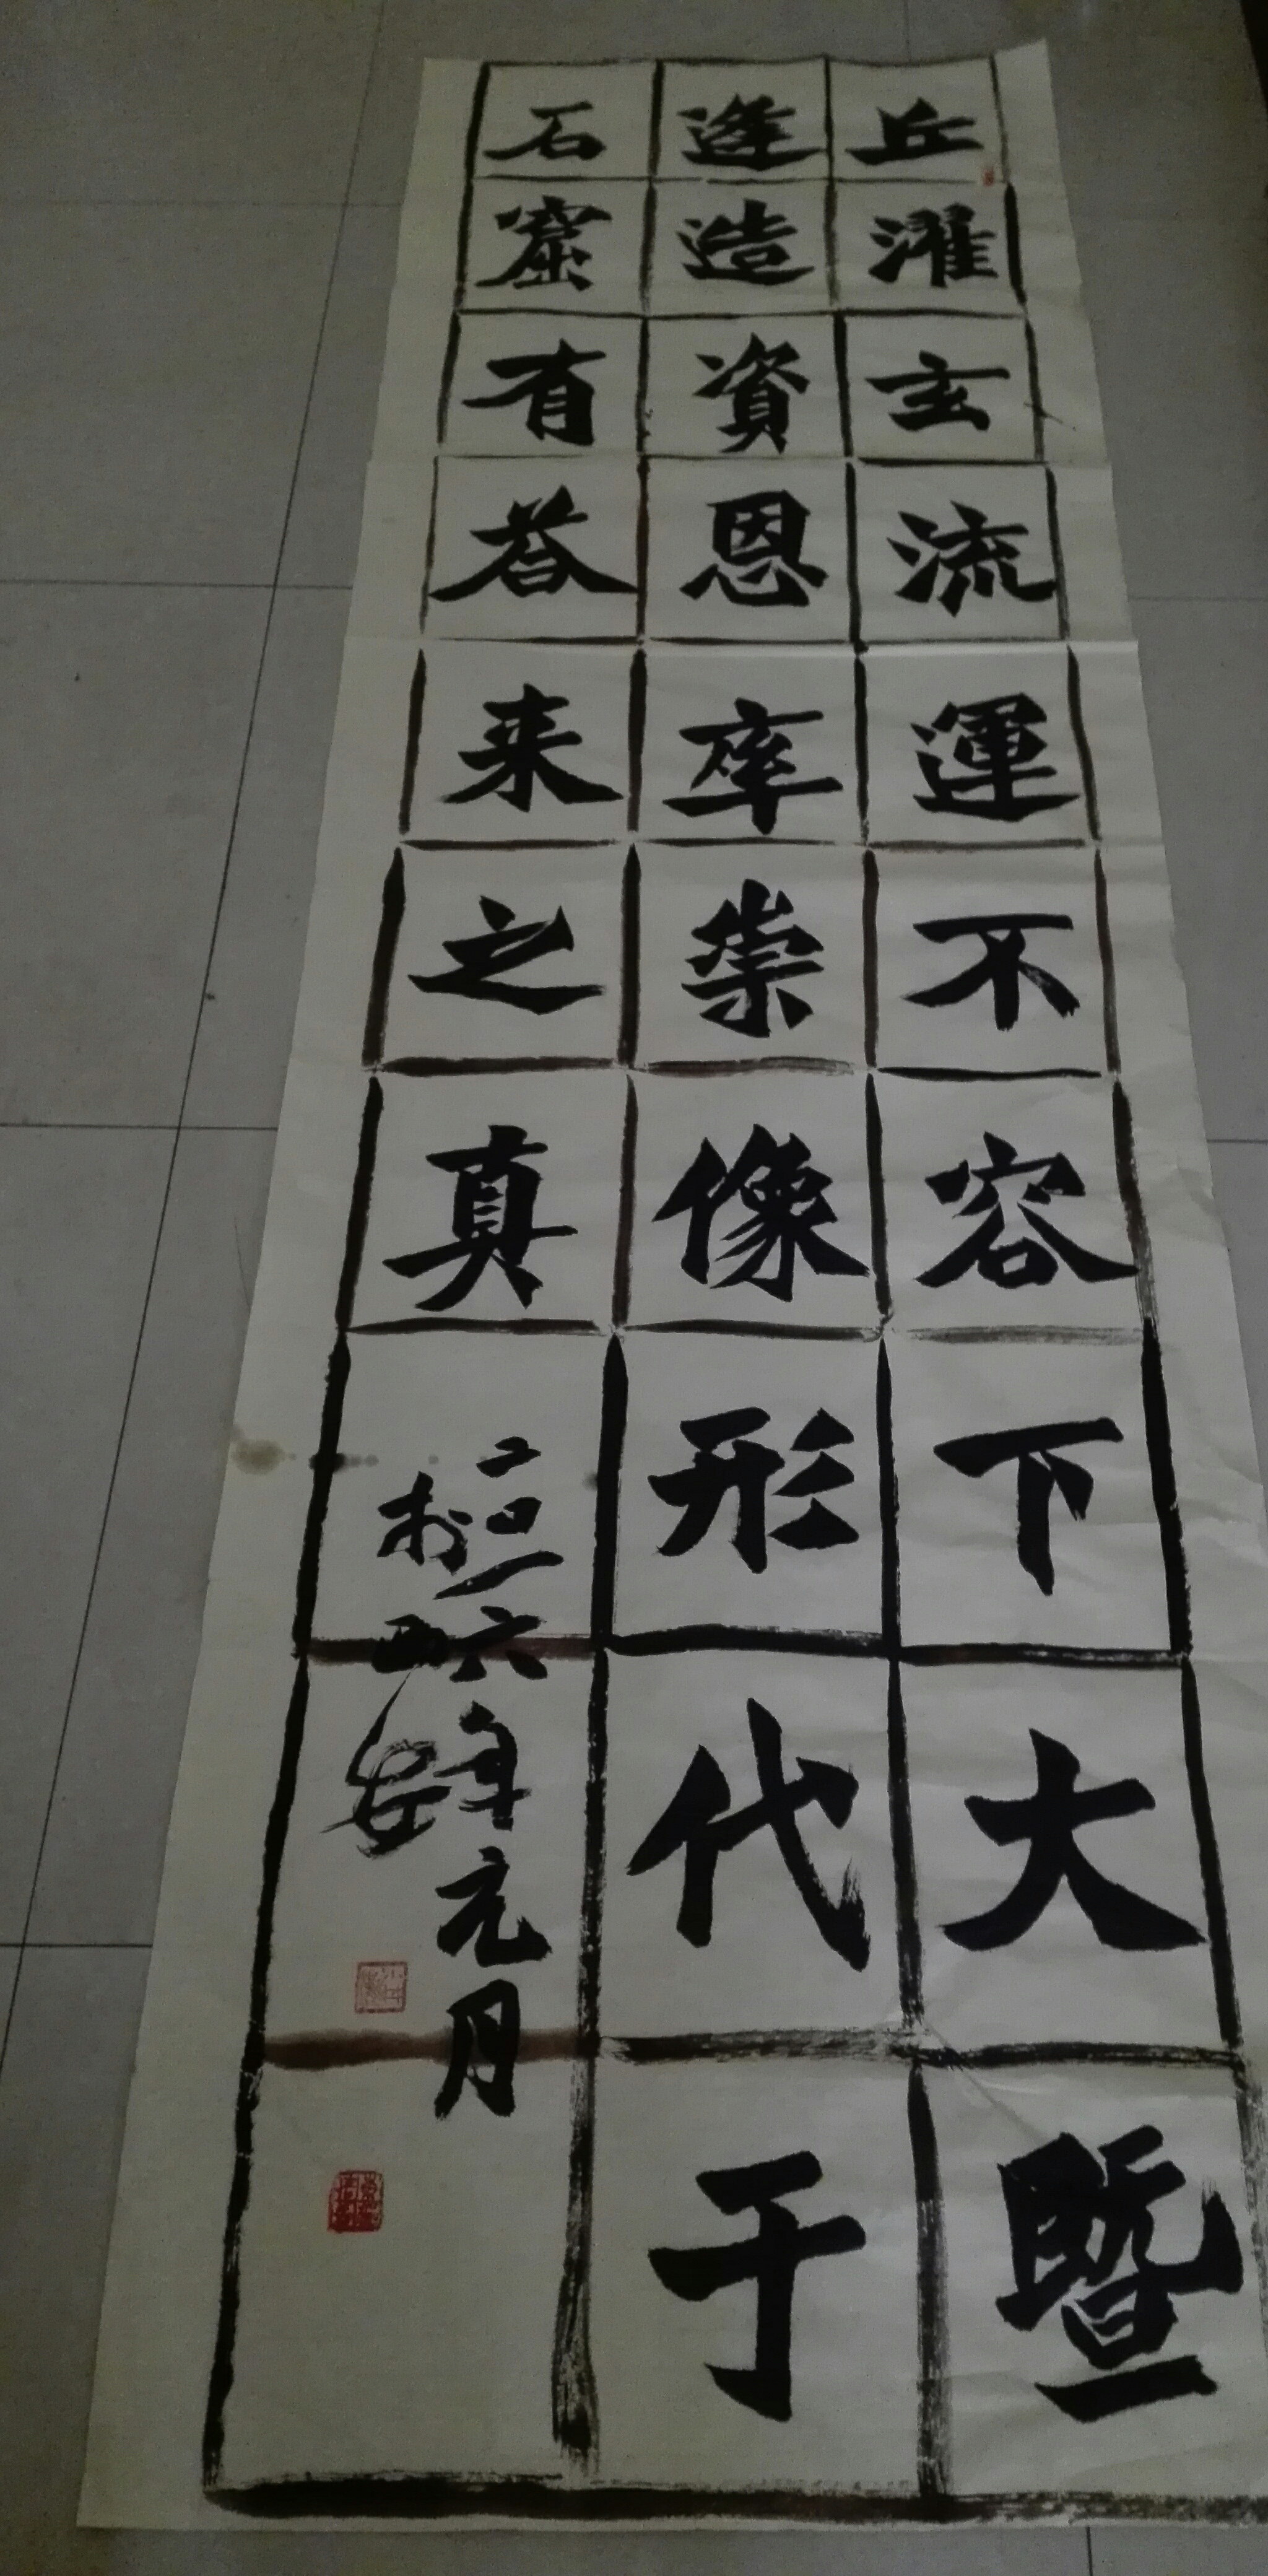 丘濯玄流運不容下大暨
逢造資恩率崇像形代于
石窟有荅来之真
二〇一六年元月
於西